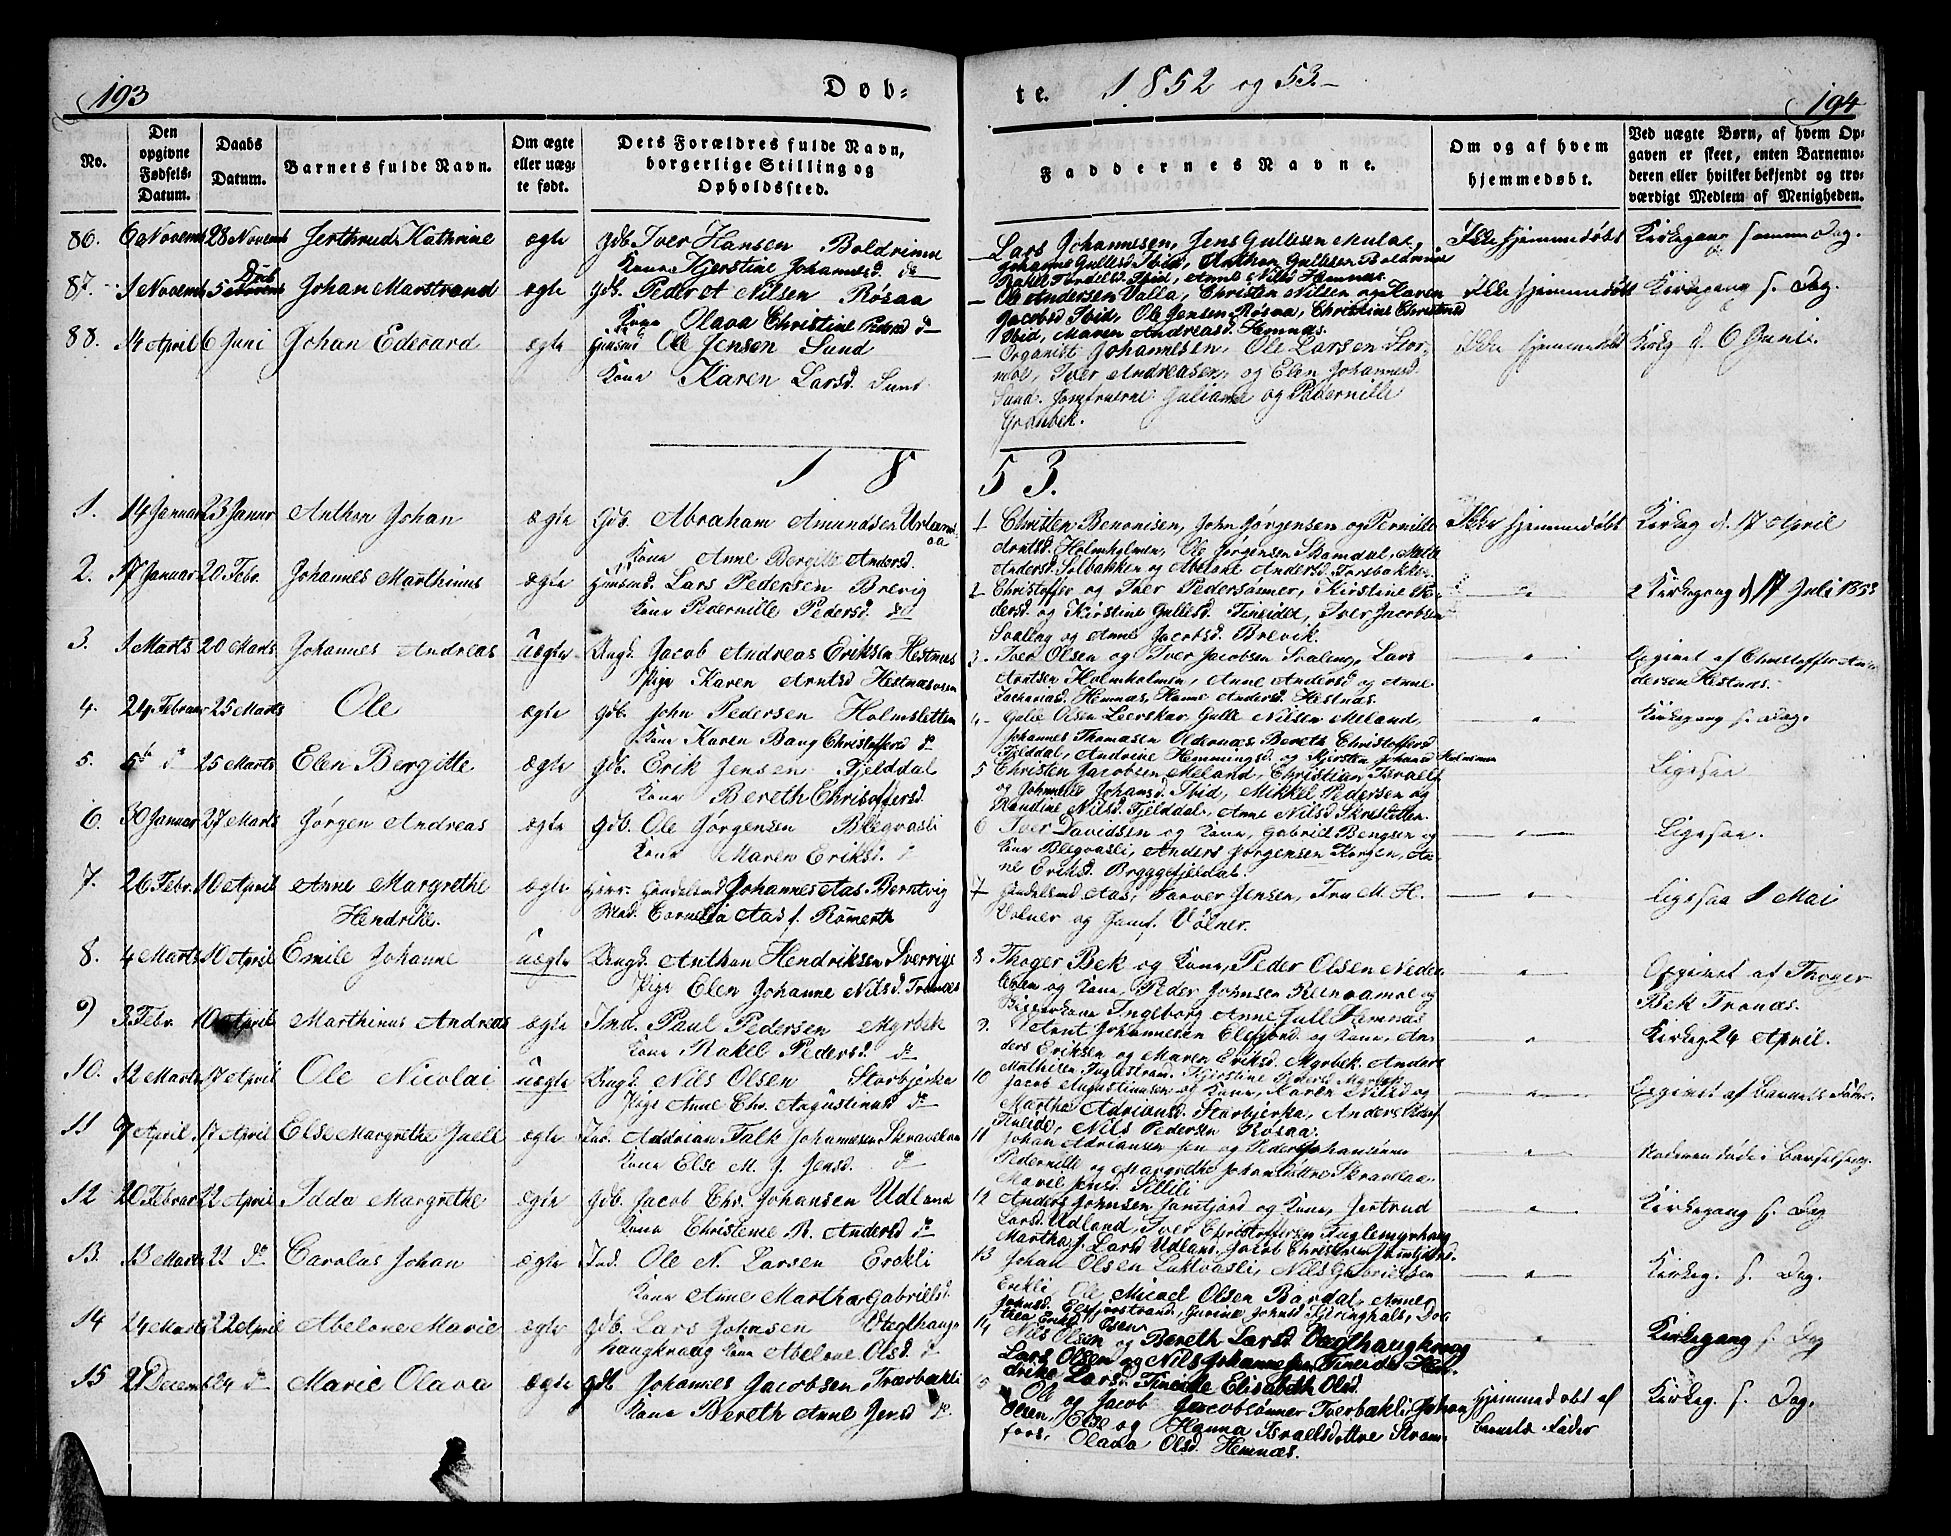 193
Døb-
te.
1852 og 53.-
194
No.
Den opgivne Fødsels-Datum.
Daabs Datum.
Barnets fulde Navn.
Om ægte eller uæg-te født.
Dets Forældres fulde Navn, borgerlige Stilling og Opholdssted.
Faddernes Navne.
Om og af hvem hjemmedøbt.
Ved uægte Børn, af hvem Op-gaven er skeet, enten Barnemo-deren eller hvilket bekjendt og tro-værdigt Medlem af Menigheden.
86. 6 Novemb 28 Novemb Jerthrud Kathrine ægte Gdb. Iver Hansen Boldrinne
Kone Kjerstine Johannesd. do
Lars Johannesen, Jens Gullesen
Johanne Gullesd Ibid, Anthon Gullesen
Rakel Ibid, Anne Nilsd Hemnæs.
Ikke hjemmedøbt Kirkegang samme Dag.
87. 1 Novemb 5 Decb Johan Marstrand ægte Gdb. Peder A Nilsen Røsaa
Kone Olava Christine Pedersd do
Ole Andersen Valla, Christen Nilsen og Karen
Jacobsd Ibid, Ole Jensen Røsaa, Christine
Ibid, Maren Andreasd. Hemnæs.
Ikke hjemmedøbt Kirkegang s. Dag.
88. 14 April 6 Juni Johan Edevard ægte Huusmd Ole Jensen Sund
Kone Karen Larsd. Sund
Organist Johannesen, Ole Larsen Stor-
moe, Iver Andreasen, og Elen Johannesd.
Sund. Jomfruerne Juliane og Pedernille
Grønbek.
Ikke hjemmedøbt Kirkg s. 6 Juni.
18 53.
1. 14 Januar 23 Januar Anthon Johan ægte Gdb. Abraham Amundsen Urland-
aa
Kone Anne Bergitte Andersd.
1 Christen Benonisen, John Jørgensen og Pernille
Arntsd. Holmholmen, Ole Jørgensen
Andersd. Solbakken og Abelone Andersd.
Ikke hjemmedøbt Kirkeg d. 17 April
2. 17 Januar 20 Febr. Johannes Marthinus ægte Huusmd. Lars Pedersen Brevig
Kone Pedernille Pedersd. do
2 Christoffer og Iver Pedersønner, Kirstine Pe-
dersd og Kirstine Gullesd. Fineidet, Iver Jacobsen
Svaleng og Anne Jacobsd. Brevik.
Kirkegang d 17 Juli 1853
3. 1 Marts 20 Marts Johannes Andreas Uægte Ungk. Jacob Andreas Eriksen Hestnæs
Pige Karen Arntsd Hestnæsosen
3. Iver Olsen og Iver Jacobsen Svaleng, Lars
Arntsen Holmholmen, Anne Andersd og Anne
Zachariasd. Hemnæs, Hanne Andersd. Hestnæs.
Opgivet af Christoffer An-
dersen Hestnæs.
4. 24 Februar 25 Marts Ole ægte Gdb. John Pedersen Holmsletten
Kone Karen Bang Christoffersd do
4 Gulle Nilsen Meland,
Johannes Thomasen Oldernæs, Bereth Christoffersd
Fjelddal, Andrine Hemmingsd.
Kirkegang s. Dag.
5. 5te do 25 Marts Elen Bergitte ægte Gdb. Erik Jensen Fjelddal
Kone Bereth Christoffersd.
5 Christen Jacobsen Meland, Christian
og Ibid, Mikkel Pedersen og
Nilsd. Fjelddal, Anne Nilsd
Ligesaa
6. 30 Januar 27 Marts Jørgen Andreas ægte Gdb. Ole Jørgensen Blegvasli
Kone Maren Eriksd. do
6 Iver Davidsen og Kone, Gabriel Bengsen og
Kone Blegvasli, Anders Jørgensen Korgen, An-
ne Eriksd. Bryggefjeldal.
Ligesaa.
7. 26 Febr. 10 April Anne Margrethe
Hendrike.
ægte Herr Handelsmd Johannes Aas Berntvig
Md. Cornelia Aas f. Rømerth
7 Handelsmd Aas, Farver Jensen, Fru M. H.
Volner og Jomf. Volner.
Ligesaa 1 Mai
8. 4 Marts 10 April Emile Johanne uægte Ungk. Anthon Hendriksen Sverrige
Pige Elen Johanne Nilsd. Tronæs
8 Thoger Bek og Kone, Peder Olsen
og Kone, Peder Johnsen og
Ingeborg Anne Hemnæs
Opgivet af Thoger
Bek Tronæs.
9) 3 Febr. 10 April Marthinus Andreas ægte Ind. Paul Pedersen Myrbek
Kone Rakel Pedersd. do
9. Arnt Johannesen og Kone, An-
ders Eriksen og Maren Eriksd. Myrbek Anders
Mathisen
Kirkeg 24 April.
10. 12 Marts 17 April Ole Nicolai uægte Ungk. Nils Olsen Storbjerka
Pige Anne Chr. Augustinusd do
10 Jacob Augustinusen og Kone, Karen Nilsd og
Martha Adriansd. Storbjerka, Anders
Nils Pedersen Røsaa.
Opgivet af Barnets Fader.
11 7 April 17 April Else Margrethe Jaell ægte Ind. Addrian Falk Johannesen Skravelaa
Kone Else M. J. Jensd. do
11 Johan Adriansen sen og
Pedernille og Margrethe
Marie Jensd.
Moderen døde i Barselseng.
12 20 Februar 22 April Idda Margrethe ægte Gdb. Jacob Chr. Johansen Udland
Kone Christense R. Andersd do
12 Anders Johnsen og Kone, Jertrud
Larsd. Udland, Iver Christoffersen Fuglemyrhaug
Martha J. Larsd Udland, Jacob Christian
Kirkegang s. Dag
13. 13 Marts 22 do Carolus Johan ægte Ind. Ole N. Larsen Enkli
Kone Anne Martha Gabrielsd.
13 Johan Olsen Luktvasli, Nils Gabrielsen
Enkli, Ole Micael Olsen Bardal, Anne
Johnsd.
Kirkeg. s. Dag.
14 24 Marts 22 April Abelone Marie ægte Gdb. Lars Johnsen
Haugkraag Kone Abelone Olsd. do
14 Nils Olsen og Bereth Larsd
Lars Olsen og Nils Johannesen Fineide Hen-
drike Larsd. Fineide Elisabeth Olsd.
Kirkegang s. Dag
15 27 Decemb 24 do Marie Olava ægte Gdb Johannes Jacobsen Tverbakli
Kone Bereth Anne Jensd do.
Ole og Jacob Jacobsønner Tverbakli, Johan
Olsen, Else og Hanna Israelsdøttre
Olava Olsd. Hemnæs.
Hjemmedøbt af
Barnets Fader
Kirkeg. s. Dag.